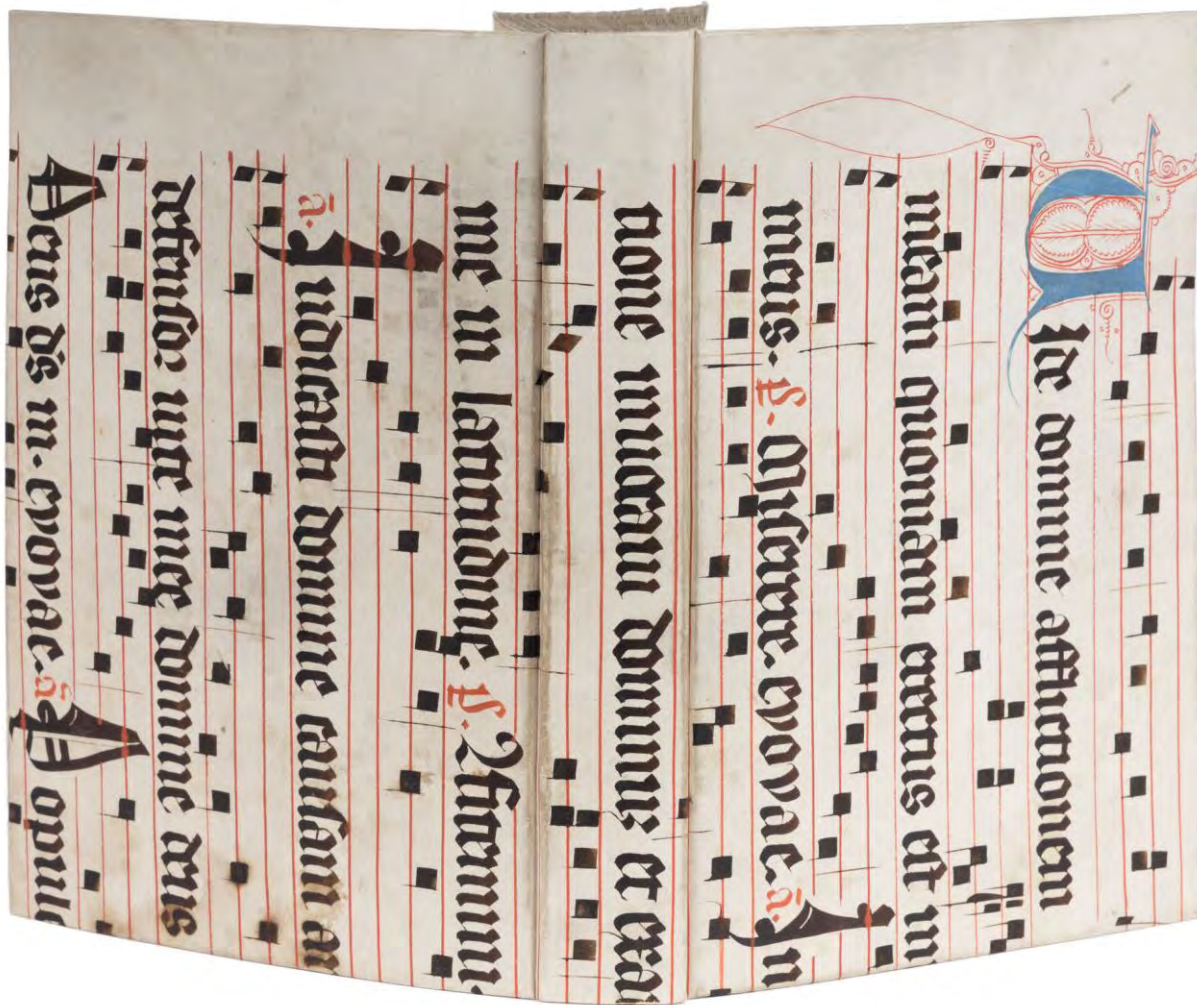 Vide domine afflictionem
meam quoniam erectus est in
meus. ps. Miserere. evovae. ā. In
tione inuocaui dominum et exau
me in latitudine. ps. Ꝯfitemini.
ā. Iudicasti domine causam an
defensor uite meę domine deus
Deus ds m. evovae. ā. Popule